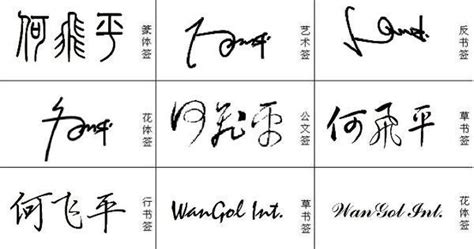 何飛平
篆体签
艺术签
反书签
花体签
何飞平
公文签
何飛平
草书签
何飞平
行书签
WanGol Int.
草书签
WanGol Int.
花体签